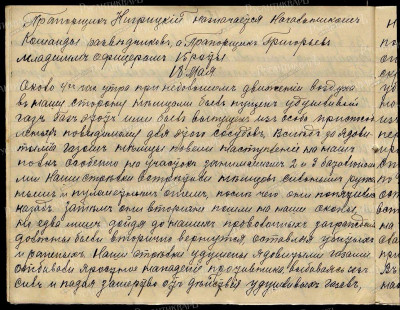 Прапорщик Нигрицкий назначается Начальником
Команды разведчиков, а Прапорщик Григорьев
младшим офицером 1 Роты
18 Мая
Около 4 ч. утра при небольшом движении воздуха
в нашу сторону немцами был пущен удушливый
газ. Газ этот ими был выпущен из особо приспособ
ленных повидимому для этого сосудов. Вслед за ядови
тыми газами немцы повели наступление на наши
позиции особенно на участок занимаемый 2 и 3 батальона
ми. Наши стрелки встретили немцев сильным ружей
ным и пулеметным огнем, после чего они попятились
назад, затем они вторично пошли на наши окопы
но едва лишь дойдя до наших проволочных заграждений
должны были вторично вернуться, оставив убитых
и раненых. Наши стрелки удушаемые ядовитыми газами
отбивали яростные нападения противника, выбиваясь из
сил и падая замертво от действия удушливых газов,